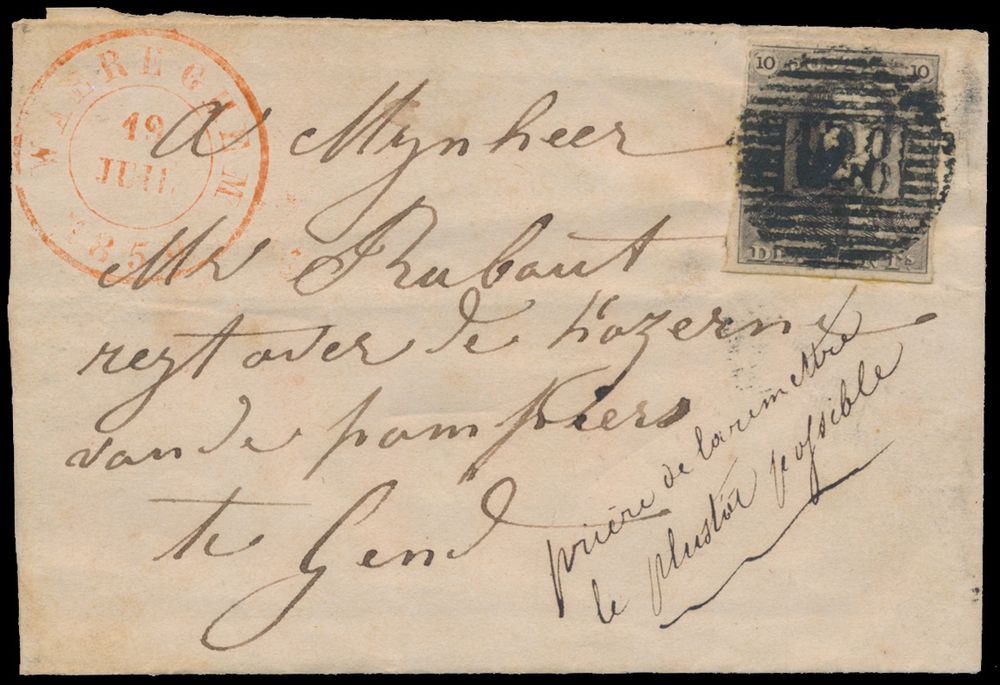 WAEREGHEM
19
JUIL
10 10
128
A Mynheer
Mr Rubout
regt over de
vande pompiers
te Gend
prière de la remettre
le plustôt possible